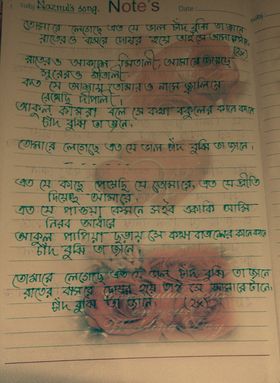 Nazrul's song. Note's Date:
তোমারে লেগেছে এত যে ভাল চাঁদ বুঝি তা জানে
রাতেরও বাসরে দোসর হয়ে তাই সে আমারে টানে (2x)
রাতেরও আকাশে মিতালী আমারে দিয়েছে
সুরেরও গীতালী
কত যে আশায় তোমারও লাগি জ্বালিয়ে
রেখেছি দীপালি।
আকুল বলে সে কথা বকুলের কানে কানে
চাঁদ বুঝি তা জানে।
তোমারে লেগেছে এত যে ভাল চাঁদ বুঝি তা জানে।
এত যে কাছে পেয়েছি যে তোমারে, এত যে প্রীতি
দিয়েছ আমারে
এত যে পাওয়া কেমনে সইব একাকি আমি
নিরব আধারে
আকুল পাপিয়া ছড়ায় সে কথা বাতাসের কানে কানে
চাঁদ বুঝি তা জানে।
তোমারে লেগেছে এত যে ভাল চাঁদ বুঝি তা জানে
রাতের বাসরে দোসর হয়ে তাই সে আমারে টানে,
চাঁদ বুঝি তা জানে। (2x)